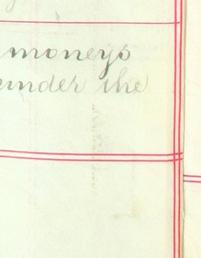 moneys
under the